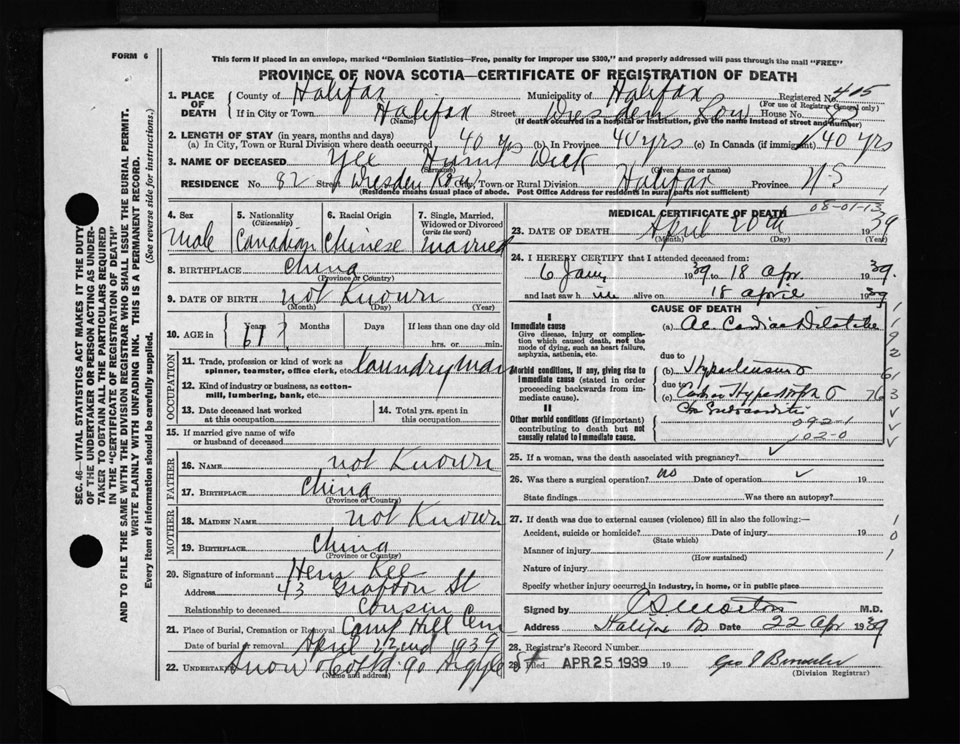 FORM 6
This form if placed in an envelope, marked "Dominion Statistics—Free, penalty for improper use $300," and properly addressed will pass through the mail "FREE"
PROVINCE OF NOVA SCOTIA—CERTIFICATE OF REGISTRATION OF DEATH
SEC. 46—VITAL STATISTICS ACT MAKES IT THE DUTY
OF THE UNDERTAKER OR PERSON ACTING AS UNDER-
TAKER TO OBTAIN ALL THE PARTICULARS REQUIRED
IN THE "CERTIFICATE OF REGISTRATION OF DEATH"
AND TO FILE THE SAME WITH THE DIVISION REGISTRAR WHO SHALL ISSUE THE BURIAL PERMIT.
WRITE PLAINLY WITH UNFADING INK. THIS IS A PERMANENT RECORD.
Every item of information should be carefully supplied. (See reverse side for instructions.)
1. PLACE OF DEATH County of Halifax Municipality of Halifax Registered No. 405
(For use of Registrar General only)
If in City or Town Halifax Street Wresden Row House No. 82
(Name) (If death occurred in a hospital or institution, give the name instead of street and number)
2. LENGTH OF STAY (in years, months and days)
(a) In City, Town or Rural Division where death occurred 40 yrs (b) In Province 40 yrs (c) In Canada (if immigrant) 40 yrs
3. NAME OF DECEASED Yee Hume Wick
(Surname) (Given name or names)
RESIDENCE No. 82 Street Wresden Row City, Town or Rural Division Halifax Province N S
(Residence means usual place of abode. Post Office Address for residents in rural parts not sufficient)
4. Sex Male
5. Nationality (Citizenship) Canadian
6. Racial Origin Chinese
7. Single, Married, Widowed or Divorced (write the word) Married
8. BIRTHPLACE China
(Province or Country)
9. DATE OF BIRTH not Known
(Month) (Day) (Year)
10. AGE in Years 61 ? Months Days If less than one day old
hrs. or min.
OCCUPATION
11. Trade, profession or kind of work as spinner, teamster, office clerk, etc. laundryman
12. Kind of industry or business, as cotton-mill, lumbering, bank, etc.
13. Date deceased last worked at this occupation
14. Total yrs. spent in this occupation
15. If married give name of wife or husband of deceased
FATHER
16. NAME not Known
17. BIRTHPLACE China
(Province or Country)
MOTHER
18. MAIDEN NAME not Known
19. BIRTHPLACE China
(Province or Country)
20. Signature of informant Henry Kee
Address 43 Grafton St
Relationship to deceased Cousin
21. Place of Burial, Cremation or Removal Camp Hill Cem
Date of burial or removal April 22nd 1939
22. UNDERTAKER Snow & Co Ltd 90 Argyle St
(Name and address)
MEDICAL CERTIFICATE OF DEATH
08-01-13
23. DATE OF DEATH April 20th 1939
(Month) (Day) (Year)
24. I HEREBY CERTIFY that I attended deceased from:
6 Jany 1939 to 18 Apr. 1939.
and last saw him alive on 18 april 1939
CAUSE OF DEATH
I
Immediate cause
Give disease, injury or complication which caused death, not the mode of dying, such as heart failure, asphyxia, asthenia, etc.
(a) Ac. Cardiac Dilatation
due to
Morbid conditions, if any, giving rise to immediate cause (stated in order proceeding backwards from immediate cause).
(b) Hypertension
due to
(c) Cardiac Hypertrophy
II
Other morbid conditions (if important) contributing to death but not causally related to immediate cause.
Chr Endocarditis
092-1
102-0
25. If a woman, was the death associated with pregnancy?
26. Was there a surgical operation? no Date of operation 19
State findings Was there an autopsy?
27. If death was due to external causes (violence) fill in also the following:—
Accident, suicide or homicide? Date of injury 19
(State which)
Manner of injury
(How sustained)
Nature of injury
Specify whether injury occurred in industry, in home, or in public place
1
0
1
Signed by M.D.
Address Halifax Date 22 Apr 1939
28. Registrar's Record Number
29. Filed APR 25 1939 19
(Division Registrar)